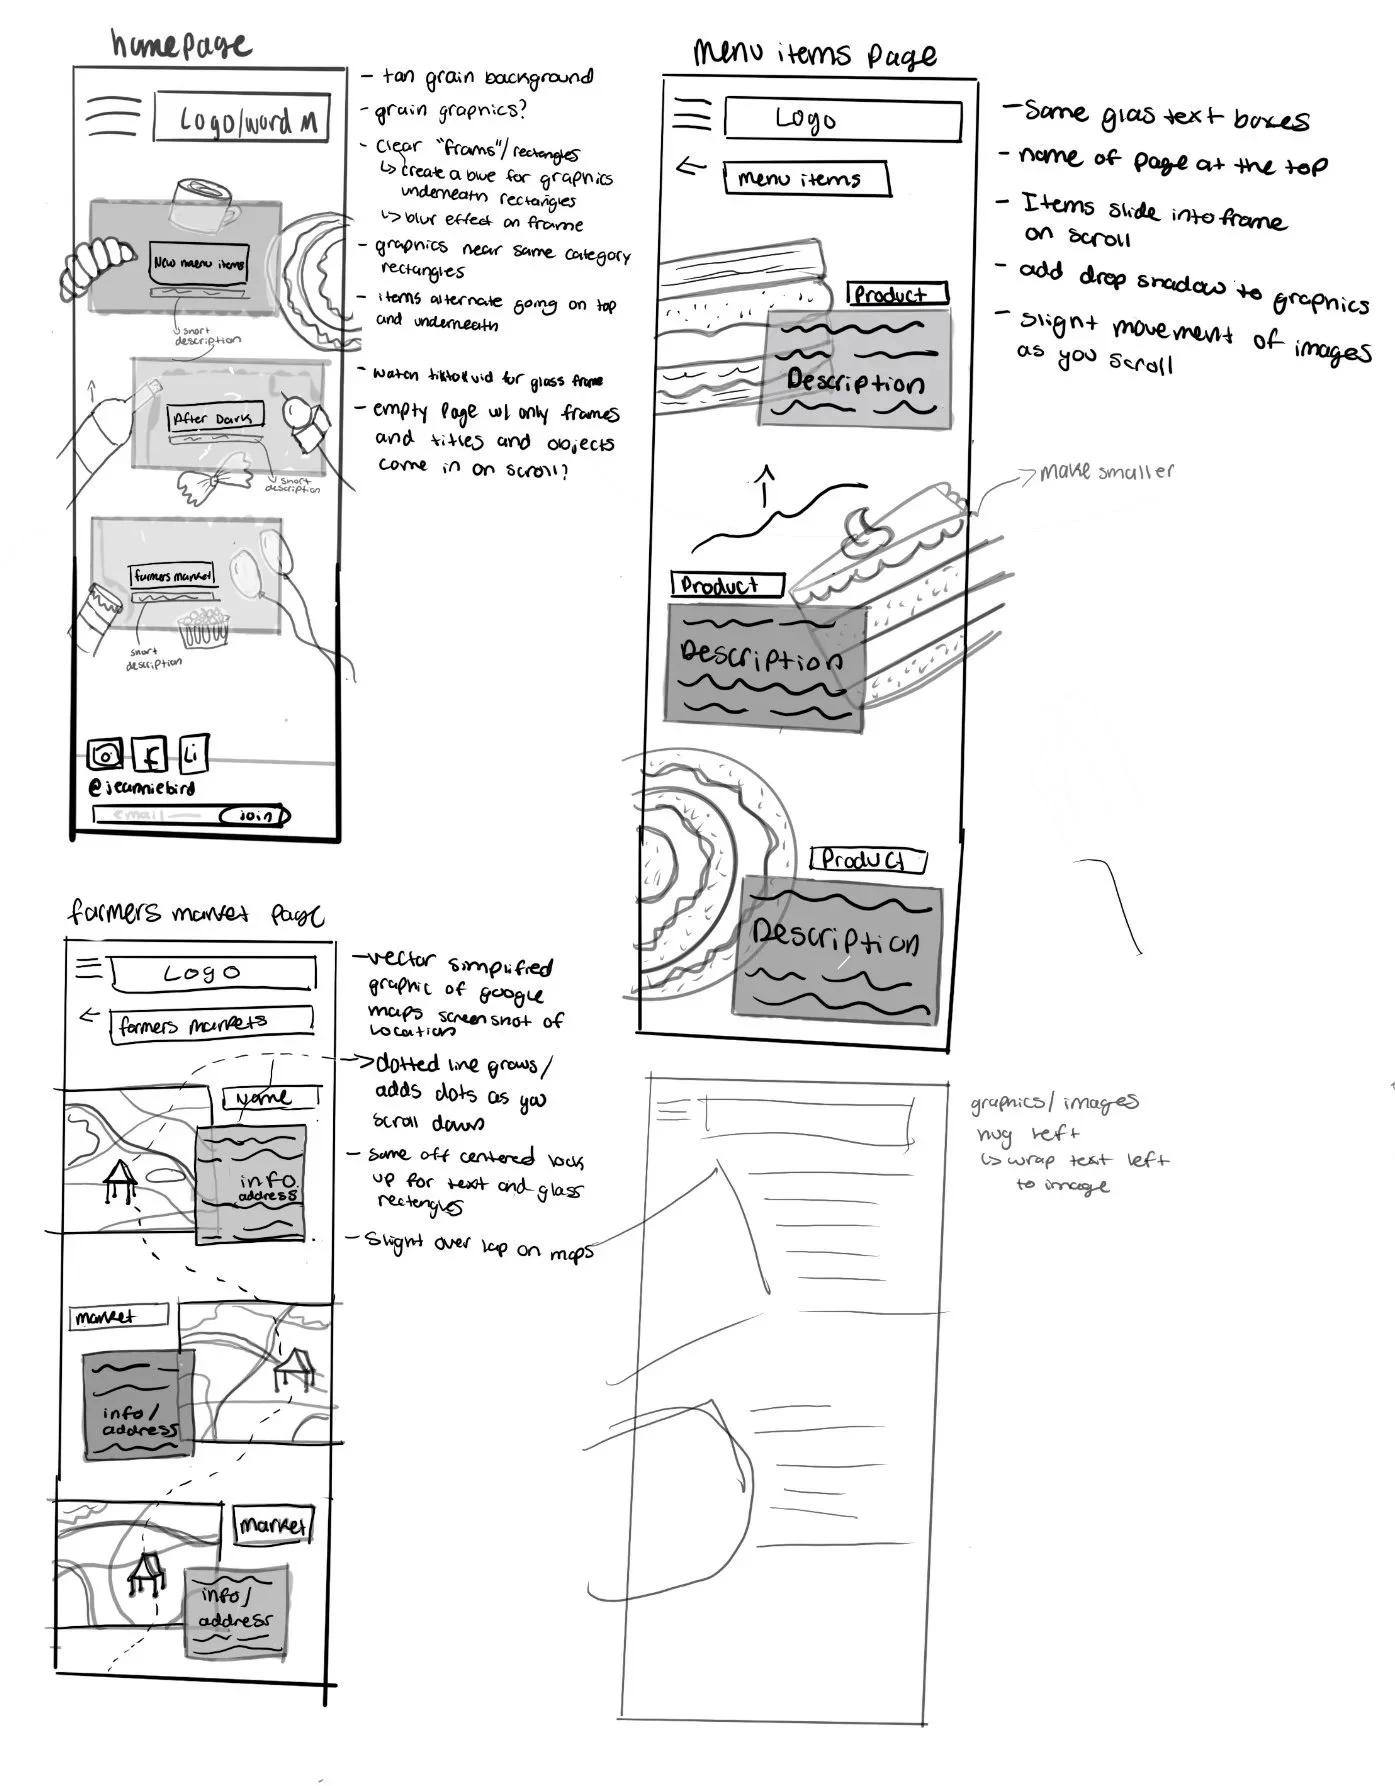 homepage
Logo/word M
New menu items
short
description
After Dark
short
description
farmers market
short
description
f
Li
@jeanniebird
email
join
- tan grain background
- grain graphics?
- clear "frams"/rectangles
↳ create a blue for graphics
underneath rectangles
↳ blur effect on frame
- graphics near same category
rectangles
- items alternate going on top
and underneath
- watch tiktok vid for glass frame
- empty page w/ only frames
and titles and objects
come in on scroll?
menu items page
Logo
← menu items
Product
Description
Product
Description
Product
Description
- Same glas text boxes
- name of page at the top
- Items slide into frame
on scroll
- add drop shadow to graphics
- slight movement of images
as you scroll
→ make smaller
farmers market page
Logo
← farmers markets
Name
info.
address
market
info/
address
market
info/
address
- vector simplified
graphic of google
maps screenshot of
location
→ dotted line grows/
adds dots as you
scroll down
- same off centered lock
up for text and glass
rectangles
- slight over lap on maps
graphics/images
hug left
↳ wrap text left
to image